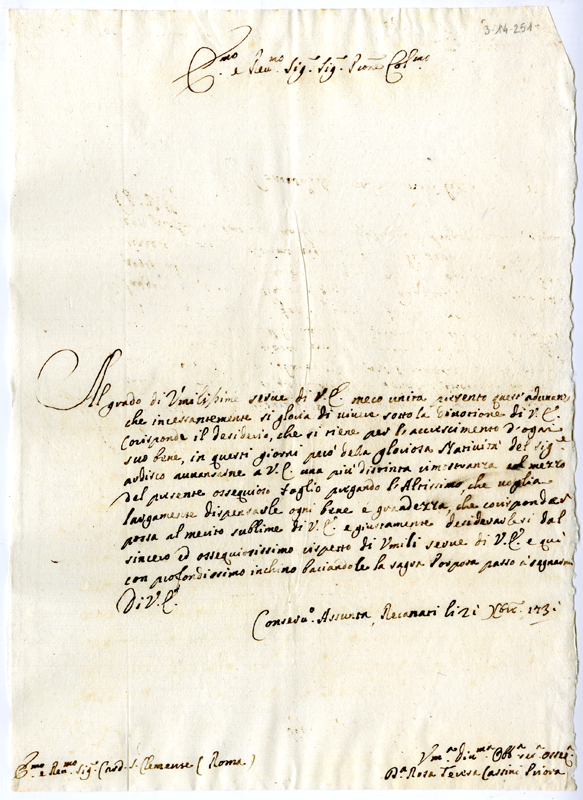 3-14-251
E.mo e Reu.mo Sig.r Sig.r Prone Col.mo
Al grado di Vmilissime serue di V.E. meco unita presento quest'adunanza
che incessantemente si gloria di uiuere sotto la diuotione di V.E.
Corisponde il desiderio, che si tiene per l'accrescimento d'ogni
suo bene, in questi giorni però della gloriosa Natiuità del Sig.re
ardisco auanzarne à V.E. una più distinta rimostranza col mezzo
del presente ossequioso foglio pregando l'Altissimo, che uoglia
largamente dispensarle ogni bene e grandezza, che corispondere
possa al merito sublime di V.E. e giustamente desiderarlesi dal
sincero ed ossequiosissimo rispetto di Vmili serue di V.E. e qui
con profondissimo inchino baciandole la sagra Porpora passo à segnarmi
Di V.E.
Conseru.o Assunta, Recanati li 21 Xbre 1731
E.mo e Reu.mo Sig.r Card. S. Clemense (Roma)
Vm.a Diu.ma Obb.a ser.a osseq.
D.a Rosa Teresa Cassini Priora